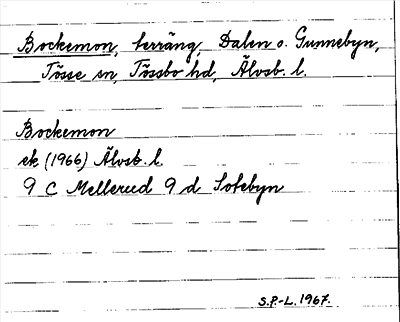 Bockemon, terräng, Dalen o. Gunnebyn,
Tösse sn, Tössbo hd, Älvsb. l.
Bockemon
ek (1966) Älvsb. l.
9 C Mellerud 9 d Sotebyn
S.P.-L. 1967.